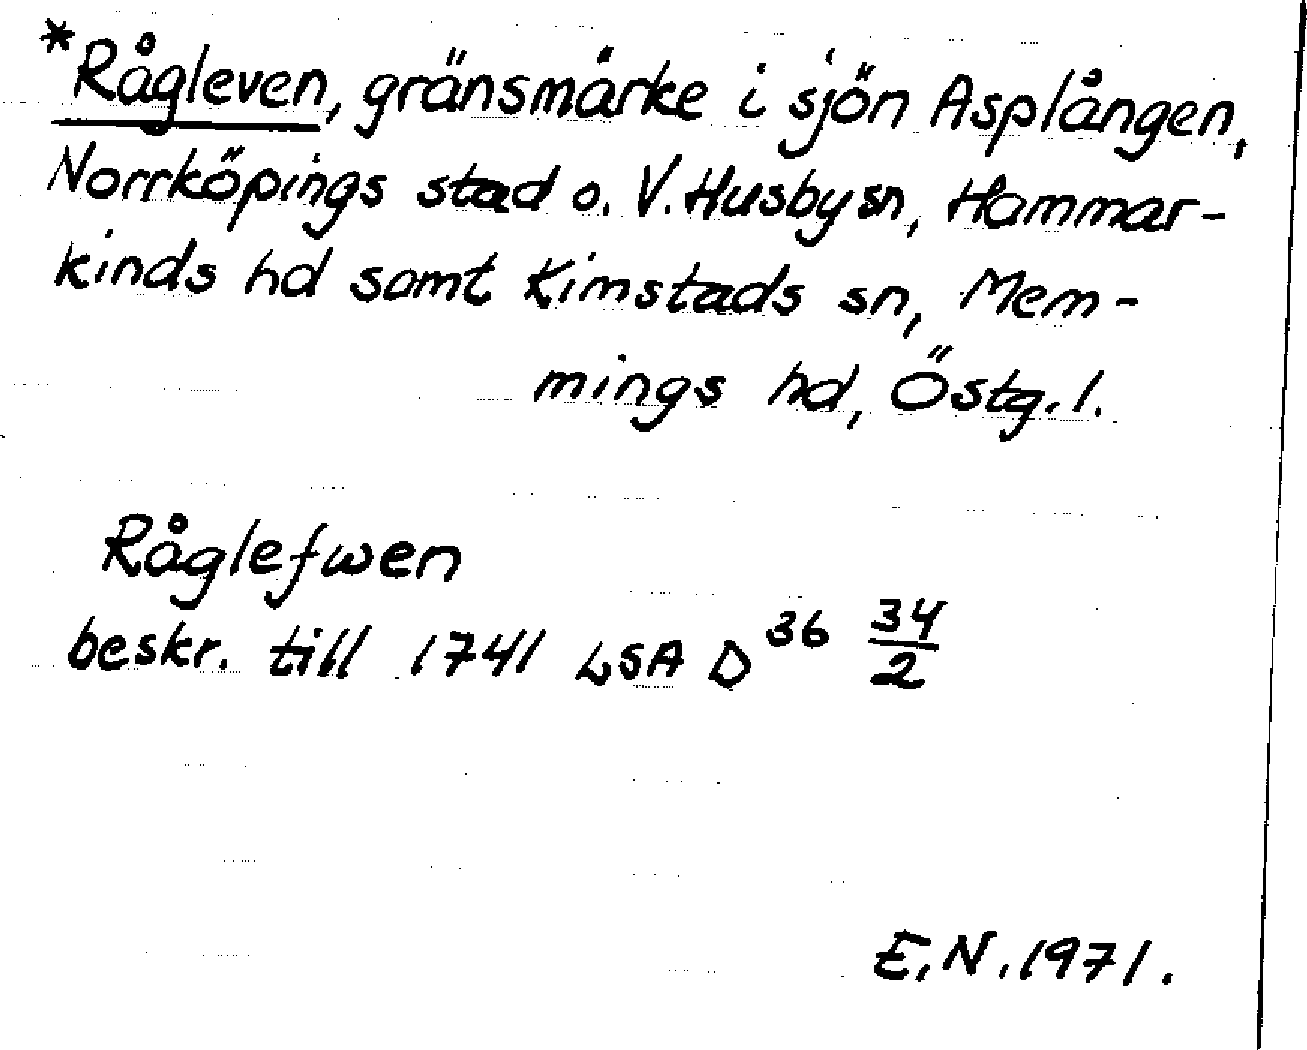 *Rågleven, gränsmärke i sjön Asplången,
Norrköpings stad o. V. Husby sn, Hammar-
kinds hd samt Kimstads sn, Mem-
mings hd, Östg. l.
Råglefwen
beskr. till 1741 LSA D 36 34/2
E.N. 1971.